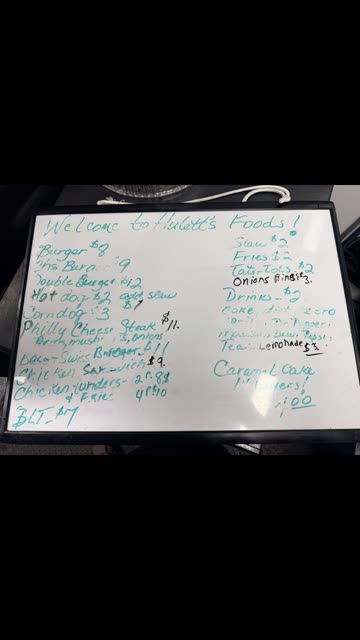 Welcome to Hulett's Foods!
Burger $8
Chs Burg $9
Double Burger $12
Hot dog $2 add slaw $1
Corndog $3
Philly Cheese Steak $11.
mush, onions
Swiss Burger $11
Chicken $9.
Chicken tenders- 2 Pc 8$
& Fries 4 Pc 10
BLT - $7
Slaw $2
Fries $2
Taurtots $2
Onions Rings $3.
Drinks - $2
Coke, diet, zero
Dr. Pepper,
mountain Dew, Pepsi,
Tea, Lemonade $3
Caramel Cake
00